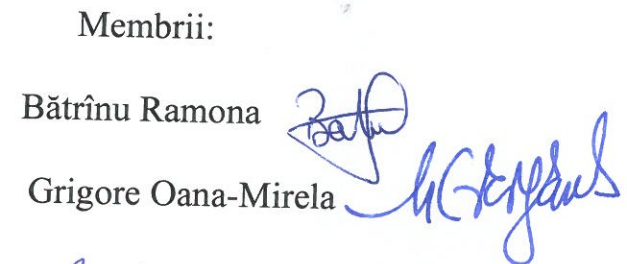 Membrii:
Bătrînu Ramona
Grigore Oana-Mirela